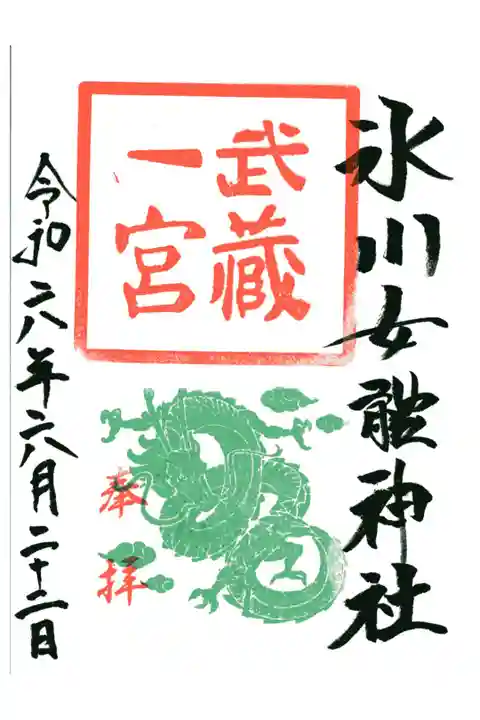 氷川女體神社
武蔵
一宮
奉拝
令和六年六月二十二日